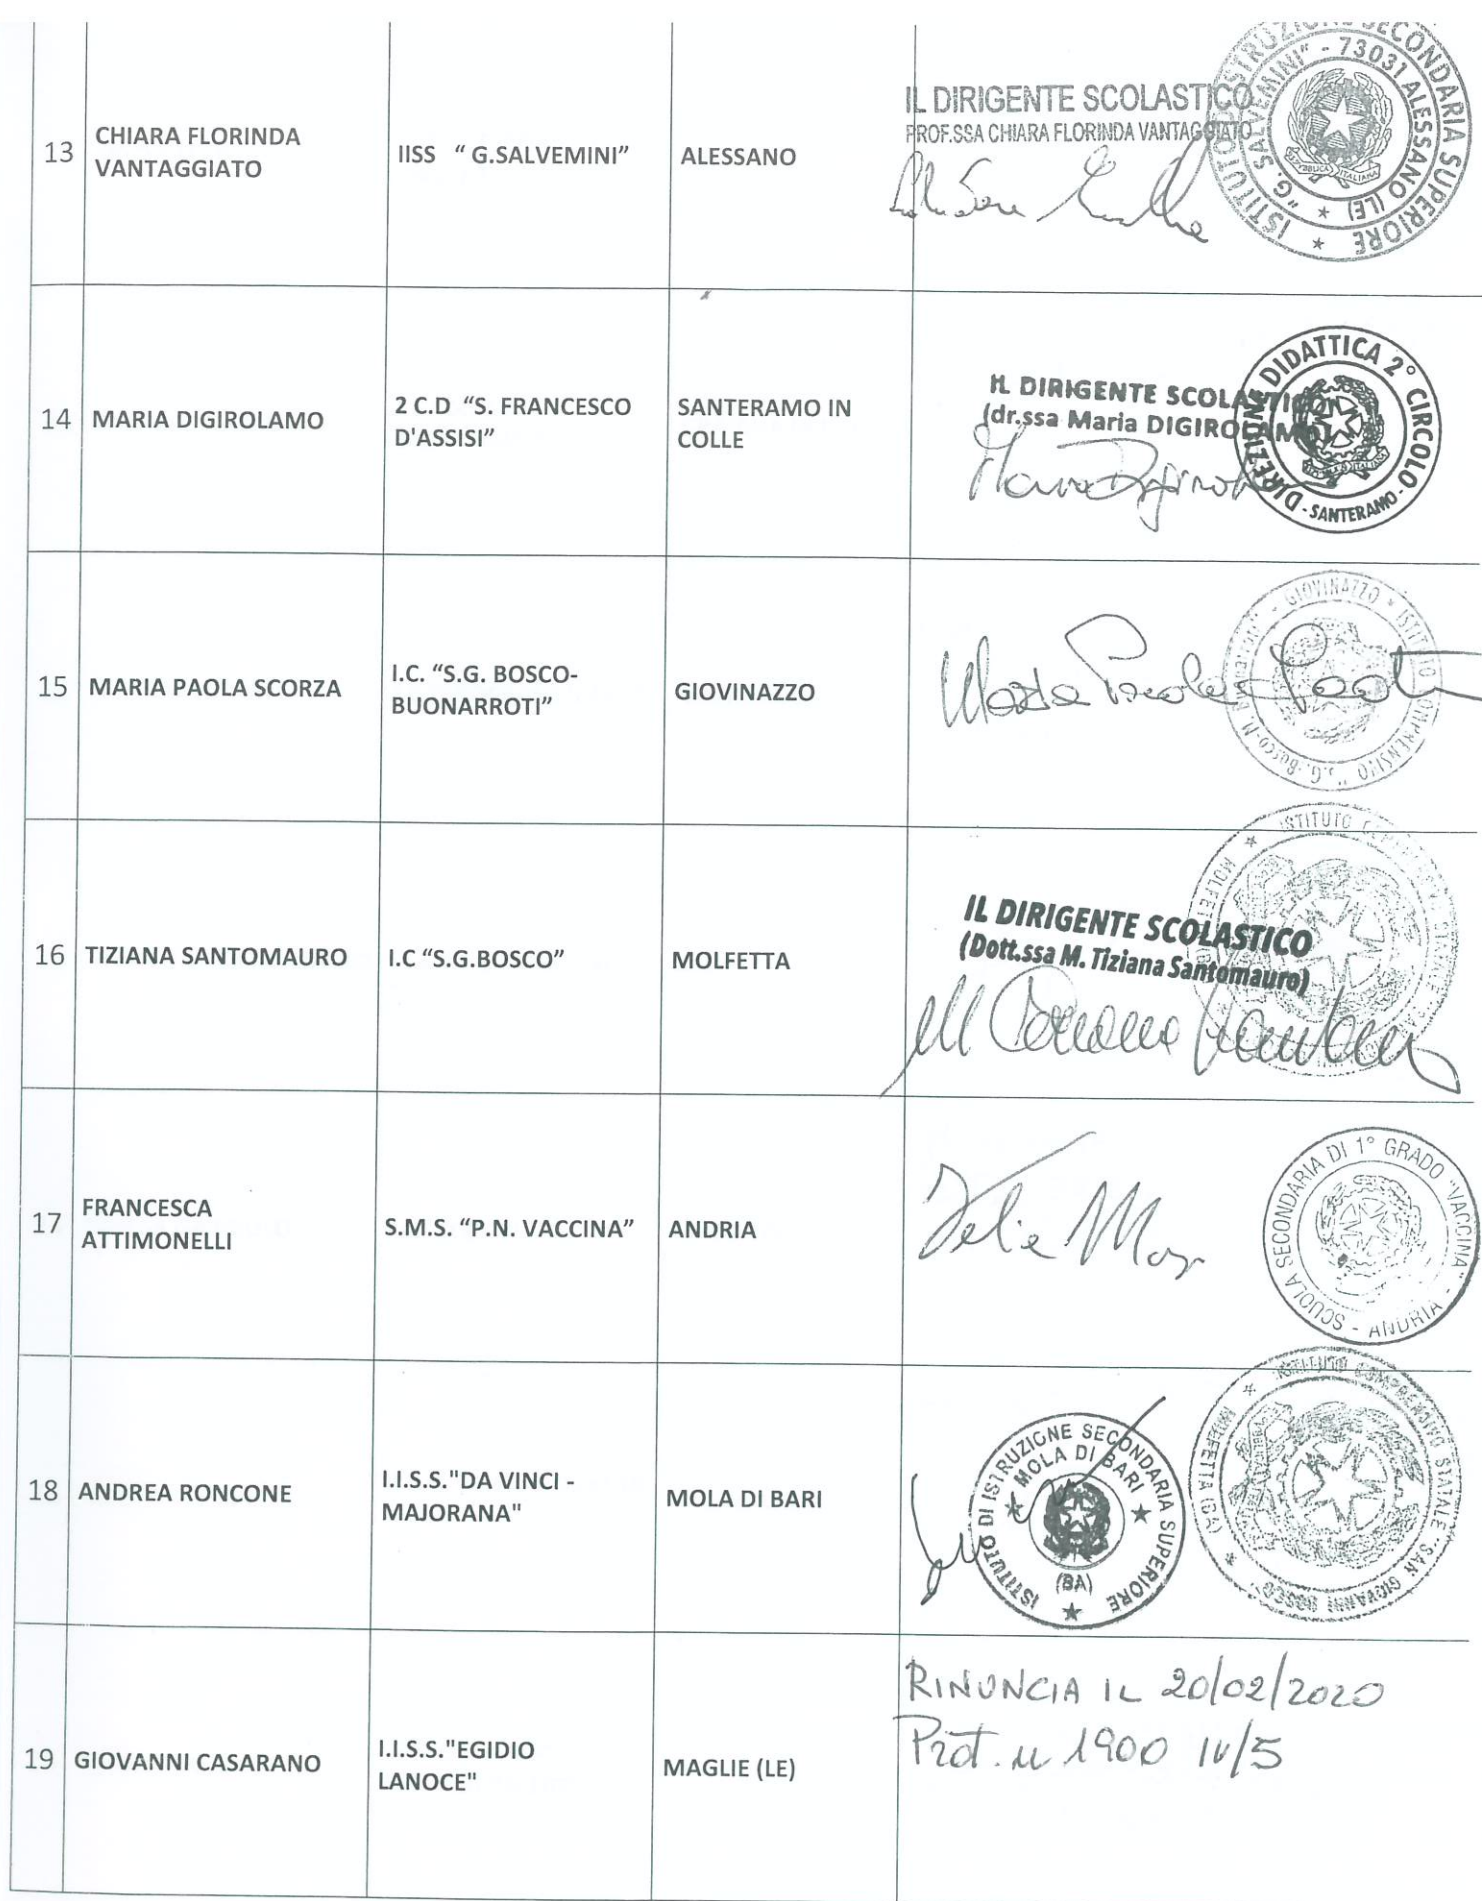 13
CHIARA FLORINDA
VANTAGGIATO
IISS “ G.SALVEMINI”
ALESSANO
IL DIRIGENTE SCOLASTICO
PROF.SSA CHIARA FLORINDA VANTAGGIATO
ISTITUTO ISTRUZIONE SECONDARIA SUPERIORE
"G. SALVEMINI" - 73031 ALESSANO (LE)
REPUBBLICA ITALIANA
14
MARIA DIGIROLAMO
2 C.D “S. FRANCESCO
D'ASSISI”
SANTERAMO IN
COLLE
IL DIRIGENTE SCOLASTICO
(dr.ssa Maria DIGIROLAMO)
Maria Digirol
DIREZIONE DIDATTICA 2° CIRCOLO
- SANTERAMO -
15
MARIA PAOLA SCORZA
I.C. “S.G. BOSCO-
BUONARROTI”
GIOVINAZZO
Maria Paola
GIOVINAZZO * ISTITUTO COMPRENSIVO "S.G. BOSCO-M.
16
TIZIANA SANTOMAURO
I.C “S.G.BOSCO”
MOLFETTA
IL DIRIGENTE SCOLASTICO
(Dott.ssa M. Tiziana Santomauro)
ISTITUTO COMPRENSIVO STATALE
17
FRANCESCA
ATTIMONELLI
S.M.S. “P.N. VACCINA”
ANDRIA
SCUOLA SECONDARIA DI 1° GRADO "VACCINA" - ANDRIA -
18
ANDREA RONCONE
I.I.S.S."DA VINCI -
MAJORANA"
MOLA DI BARI
ISTITUTO DI ISTRUZIONE SECONDARIA SUPERIORE
MOLA DI BARI
(BA)
ISTITUTO COMPRENSIVO STATALE "SAN GIOVANNI BOSCO"
MOLFETTA (BA)
19
GIOVANNI CASARANO
I.I.S.S."EGIDIO
LANOCE"
MAGLIE (LE)
RINUNCIA IL 20/02/2020
Prot. n 1900 IV/5